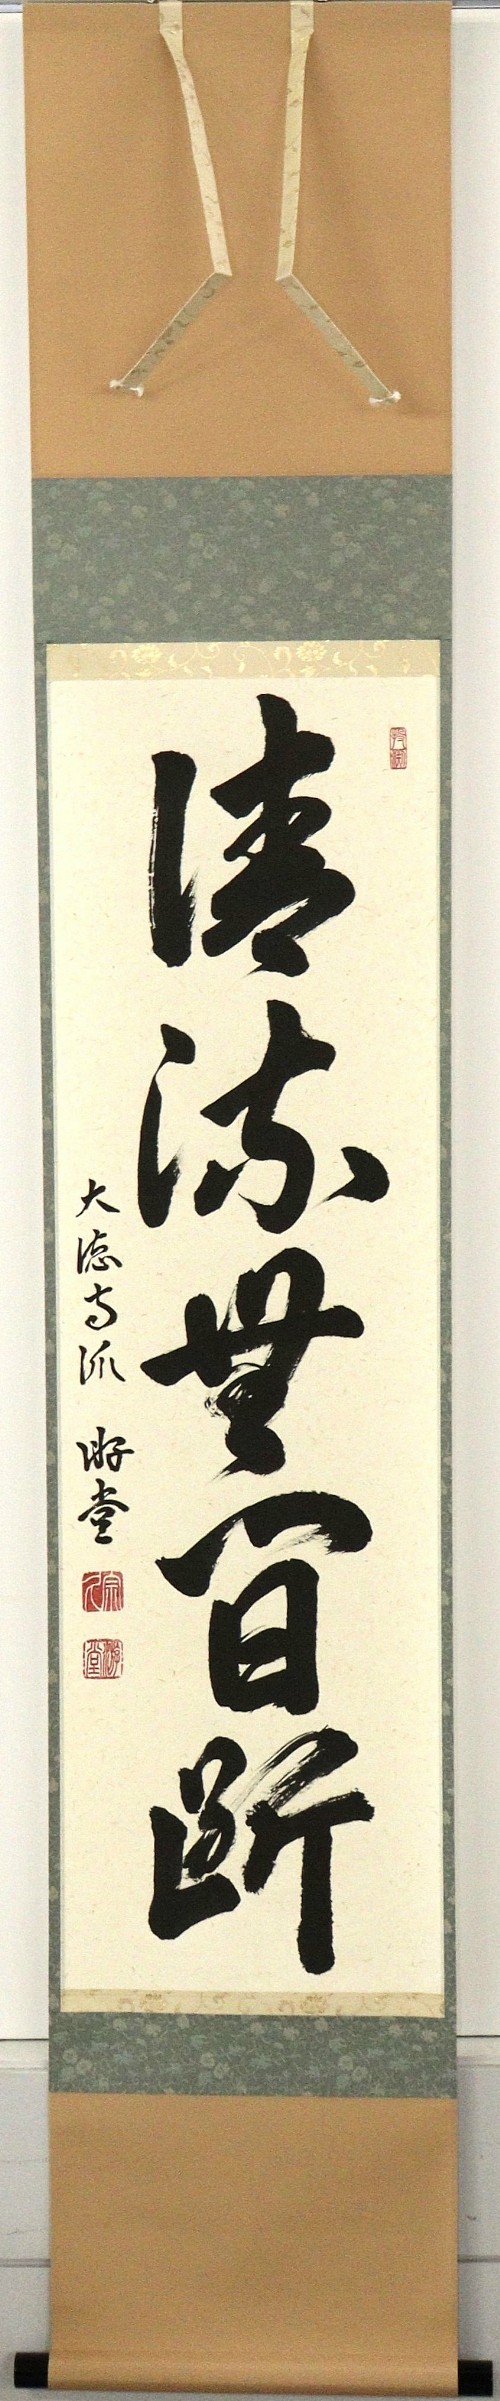 清流無間断
大徳寺派 游堂